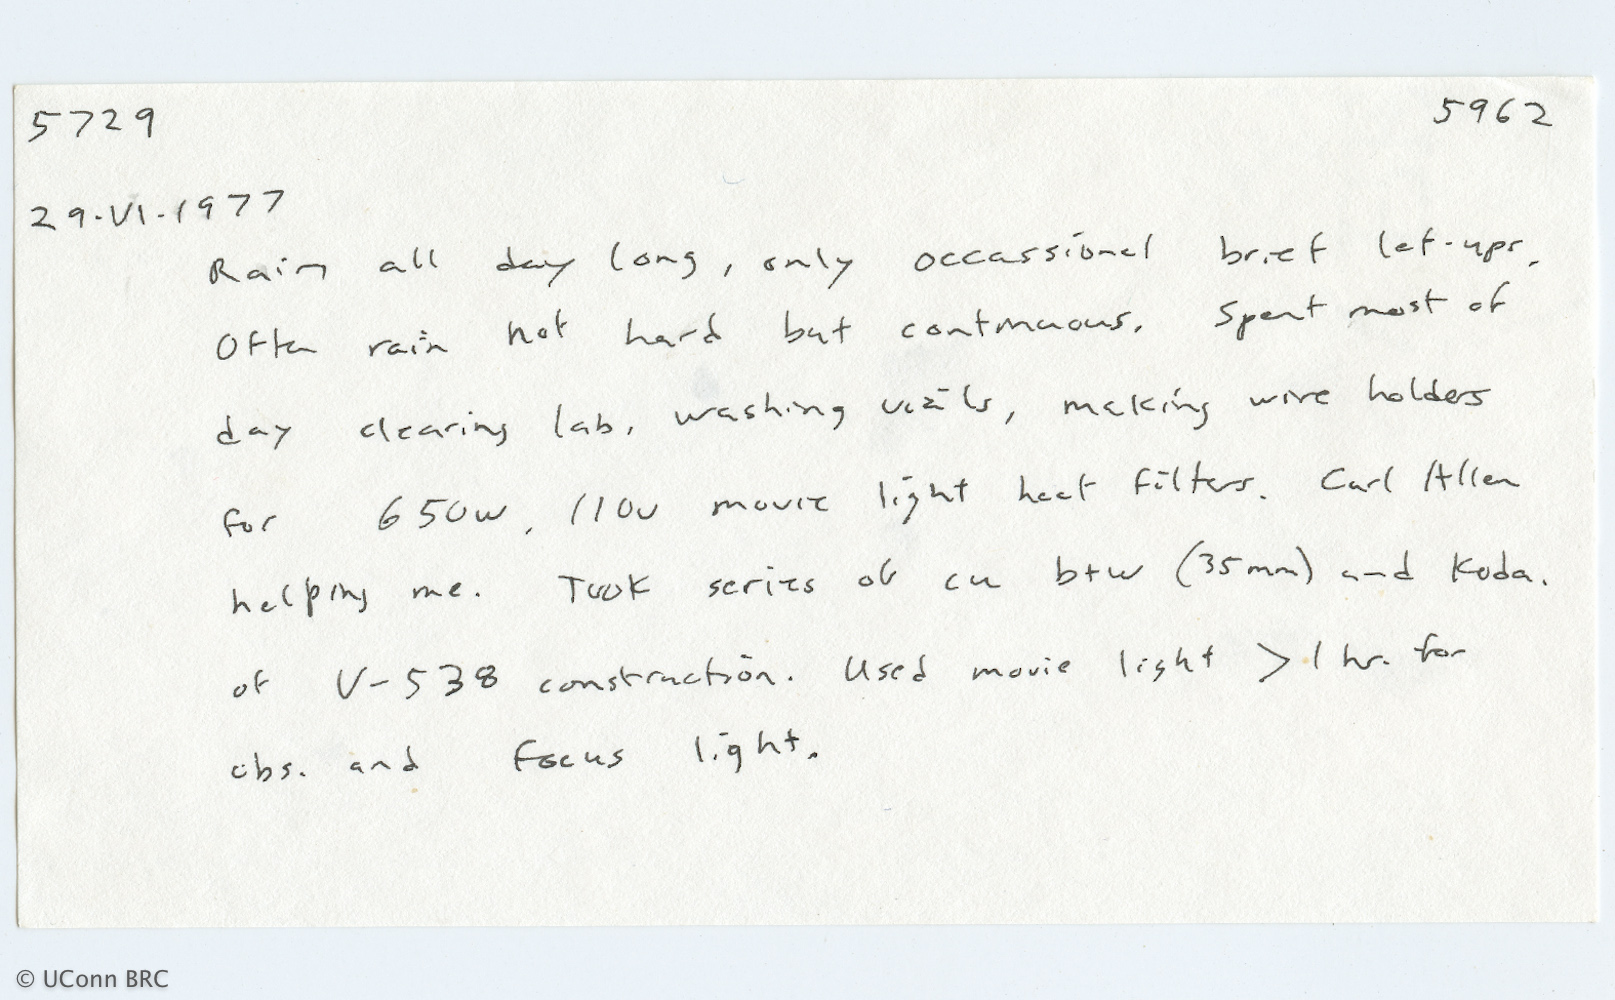 5729 5962
29-VI-1977
Rain all day long, only occassional brief let-ups.
Often rain not hard but continuous. Spent most of
day clearing lab, washing vials, making wire holders
for 650w, 110v movie light heat filters. Carl Allen
helping me. Took series of cu b+w (35mm) and Koda.
of V-538 construction. Used movie light > 1 hr. for
obs. and focus light.
© UConn BRC